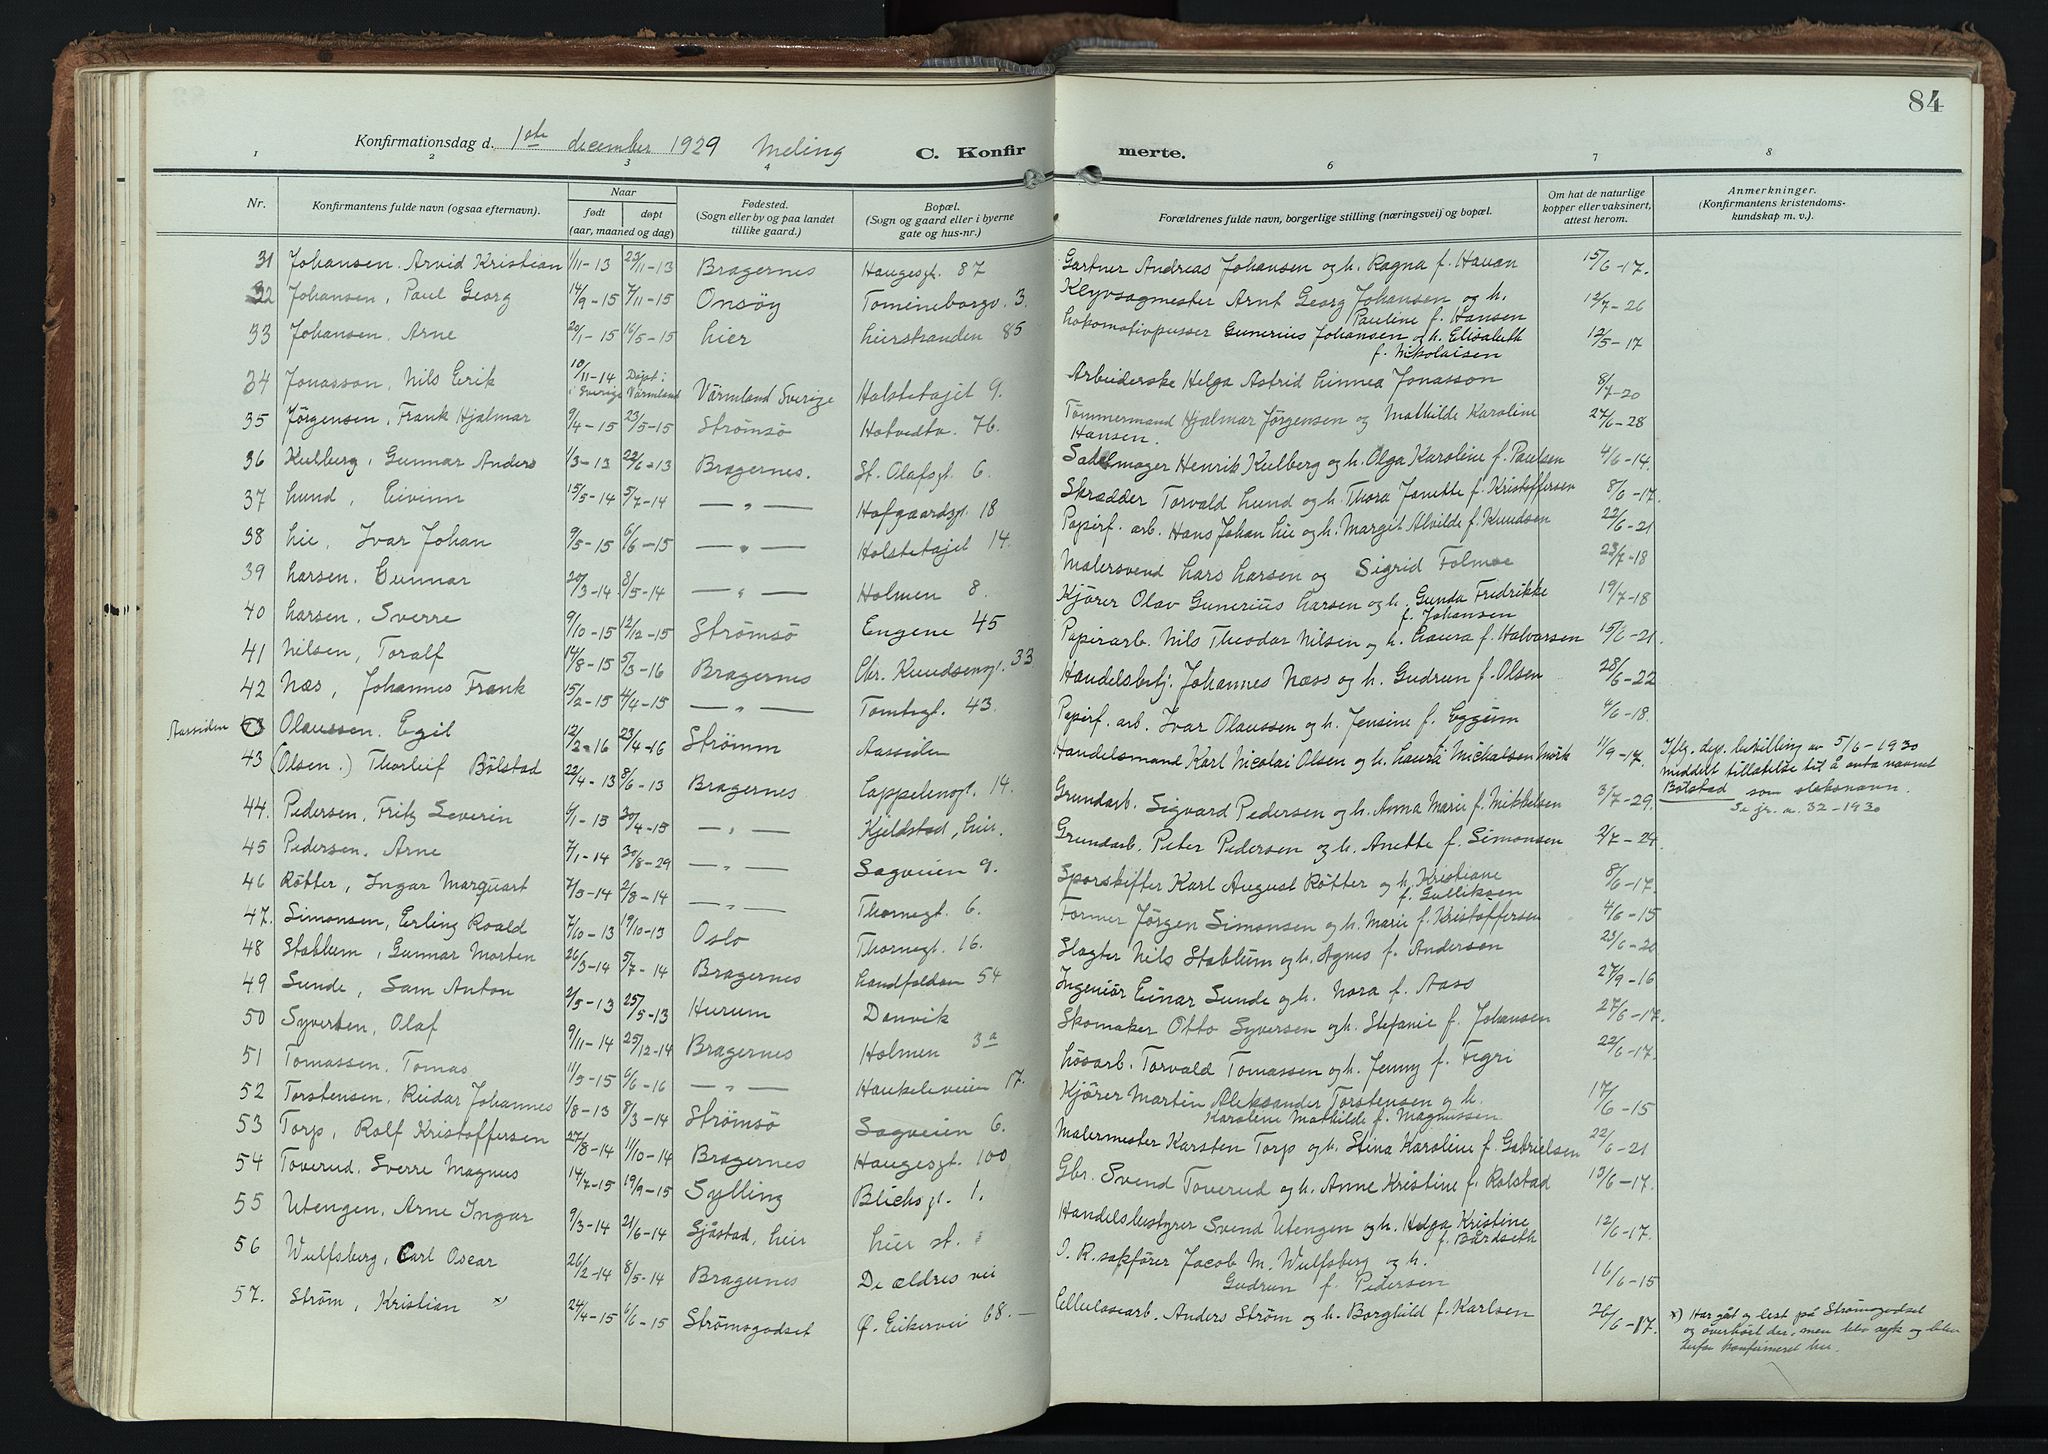 84
Konfirmationsdag d. 1ste december 1929 Meling C. Konfirmerte.
1 2 3 4 6 7 8
Nr. Konfirmantens fulde navn (ogsaa efternavn). Naar født døpt (aar, maaned og dag) Fødested. (Sogn eller by og paa landet tillike gaard.) Bopæl. (Sogn og gaard eller i byerne gate og hus-nr.) Forældrenes fulde navn, borgerlige stilling (næringsvei) og bopæl. Om hat de naturlige kopper eller vaksinert, attest herom. Anmerkninger. (Konfirmantens kristendomskundskap m. v.)
31 Johansen, Arvid Kristian 1/11-13 23/11-13 Bragernes Haugesgt. 87 Gartner Andreas Johansen og h. Ragna f. Hauan 15/6-17.
32 Johansen, Paul Georg 14/9-15 7/11-15 Onsøy Tomineborgv. 3 Klyvsagmester Arnt Georg Johansen og h. Pauline f. Hansen 12/7-26
33 Johansen, Arne 20/1-15 16/5-15 Lier Lierstranden 85 Lokomotivpusser Gunerius Johansen og h. Elisabeth f. Nikolaisen 12/5-17
34 Jonasson, Nils Erik 10/11-14 i Sverige Døpt i Värmland Värmland Sverige Holstetajet 9. Arbeiderske Helga Astrid Linnea Jonasson 8/7-20
35 Jørgensen, Frank Hjalmar 9/4-15 23/5-15 Strømsø Hotvedtv. 76. Tømmermand Hjalmar Jørgensen og Mathilde Karoline Hansen. 27/6-28
36 Kulberg, Gunnar Anders 1/3-13 22/6-13 Bragernes. St. Olafsgt. 6. Salmager Henrik Kulberg og h. Olga Karoline f. Paulsen 4/6-14.
37 Lund, Eivinn 15/5-14 5/7-14 — " — Hofgaardsgt. 18 Skrædder Torvald Lund og h. Thora Janette f. Kristoffersen 8/6-17.
38 Lie, Ivar Johan 9/5-15 6/6-15 — " — Holstetajet 14. Papirf. arb. Hans Johan Lie og h. Margit Alvilde f. Knudsen 22/6-21
39 Larsen, Gunnar 20/3-14 8/5-14 — " — Holmen 8. Malersvend Lars Larsen og Sigrid Folmoe 23/7-18
40 Larsen, Sverre 9/10-15 12/12-15 Strømsø Engene 45 Kjører Olav Gunerius Larsen og h. Gunda Fredrikke f. Johansen 19/7-18
41 Nilsen, Toralf 14/8-15 5/3-16 Bragernes Chr. Knudsensgt. 33. Papirarb. Nils Theodor Nilsen og h. Laura f. Halvorsen 15/6-21
42 Næs, Johannes Frank 15/2-15 4/4-15 — " — Tomtegt. 43. Handelsbetj. Johannes Næss og h. Gudrun f. Olsen 28/6-22
Aassiden Olaussen, Egil 12/2-16 23/4-16 Strømm Aassiden Papirf. arb. Ivar Olaussen og h. Jensine f. Eggum 4/6-18.
43 (Olsen.) Thorleif Bölstad 22/4-13 8/6-13 Bragernes Cappelensgt. 14. Handelsmand Karl Nicolai Olsen og h. Laura Michalsen Mørk 11/9-17. Iflg. dep. bestilling av 5/6-1930 meddelt tillatelse til å anta navnet Bölstad som slektsnavn. Se jr. a. 32-1930
44. Pedersen, Fritz Severin 6/1-15 30/4-15 — " — Kjeldstad, Lier. Grundarb. Sigvard Pedersen og h. Anna Marie f. Mikkelsen 3/7-29.
45 Pedersen, Arne 7/1-14 30/8-29 — " — Sagveien 9. Grundarb. Peter Pedersen og h. Anette f. Simonsen 2/7-24
46 Røtter, Ingar Marquart 7/5-14 2/8-14 — " — Thornegt. 6. Sporskifter Karl August Røtter og h. Kristiane f. Gulliksen 8/6-17.
47. Simonsen, Erling Roald 7/10-13 19/10-13 Oslo Thornegt. 16. Former Jørgen Simonsen og h. Marie f. Kristoffersen 4/6-15
48 Stablum, Gunnar Morten 26/3-14 5/7-14 Bragernes Landfalløen 54 Slagter Nils Stablum og h. Agnes f. Anderson 23/6-20
49 Sunde, Sam Anton 2/5-13 25/5-13 Hurum Danvik Ingeniör Einar Sunde og h. Nora f. Aass 27/9-16
50 Syversen, Olaf 9/11-14 25/12-14 Bragernes Holmen 3a Skomaker Otto Syversen og h. Stefanie f. Johansen 27/6-17.
51 Tomassen, Tomas 11/5-15 6/6-16 — " — Haukeleveien 17. Løsarb. Torvald Tomassen og h. Jenny f. Fegri 22/6-17.
52 Torstensen, Reidar Johannes 1/8-13 8/3-14 Strømsø Sagveien 6. Kjører Martin Aleksander Torstensen og h. Karoline Mathilde f. Magnussen 17/6-15
53 Torp, Rolf Kristoffersen 27/8-14 11/10-14 Bragernes Haugesgt. 100 Malermester Karsten Torp og h. Stina Karoline f. Gabrielsen 22/6-21
54 Toverud, Sverre Magnus 14/7-15 19/9-15 Sylling Blichsgt. 1. Gbr. Svend Toverud og h. Anne Kristine f. Rolstad 13/6-17.
55 Utengen, Arne Ingar 9/3-14 21/6-14 Sjåstad, Lier Lier st. Handelsbestyrer Svend Utengen og h. Helga Kristine f. Bårdseth 12/6-17.
56 Wulfsberg, Carl Oscar 26/2-14 8/5-14 Bragernes De ældres vei O. R. sakfører Jacob M. Wulfsberg og h. Gudrun f. Pedersen 16/6-15
57. Strøm, Kristian x) 24/4-15 6/6-15 Strømsgodset Ø. Eikervei 68. — Cellulosearb. Anders Strøm og h. Borghild f. Karlsen 26/6-17. x) Har gåt og lest på Strømsgodset og overhørt der, men blev syk og blev derfor konfirmeret her.